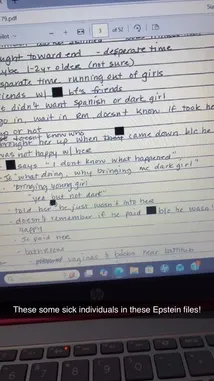 79.pdf
3 of 52
ught toward end - desperate time
ybe 1-2yr older (not sure)
sparate time running out of girls
iends w/ 's friends
t didn't want spanish or dark girl
go in, wait in Rm doesn't know if took he
up or not
doesn't know who
brought her up when came down b/c he
was not happy w/ her
says "I don't know what happened",
"what doing, why bringing me dark girl"
"bringing young girl"
"yes but not dark"
- told her he just wasn't into her
- doesn't remember if he paid b/c he wasn't
happy
- JE paid her
- bathroom
vaginas & boobs near bathtub
These some sick individuals in these Epstein files!